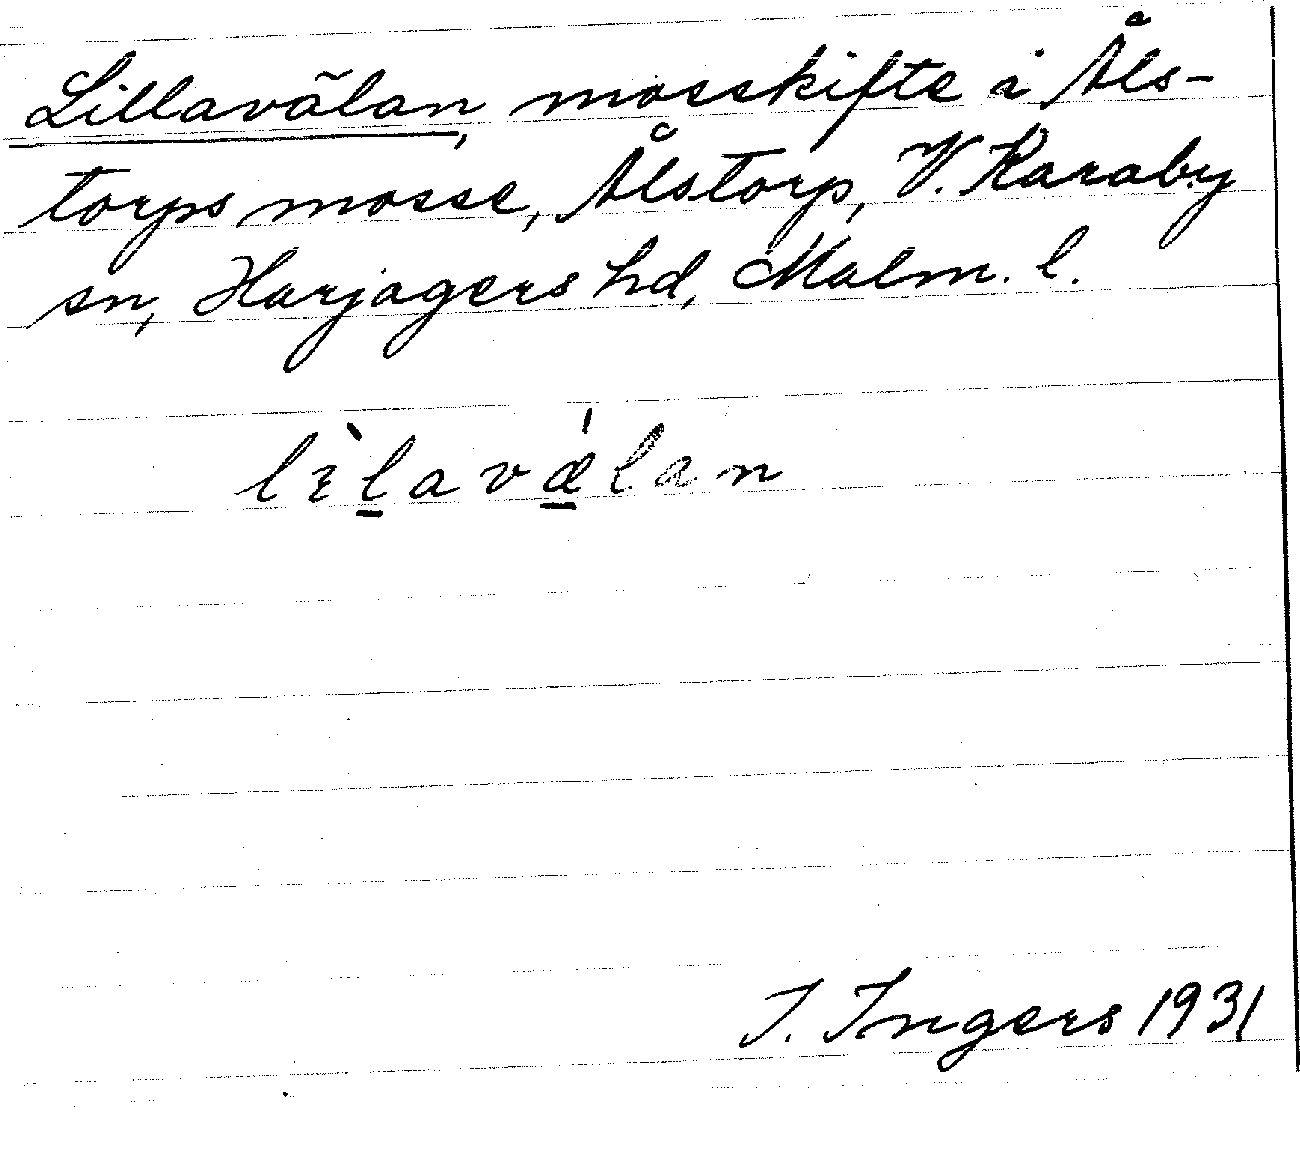 Lillavälan, mosskifte i Åls-
torps mosse, Ålstorp, V. Karaby
sn, Harjagers hd, Malm. l.
lɪ̀lavǽlan
I. Ingers 1931